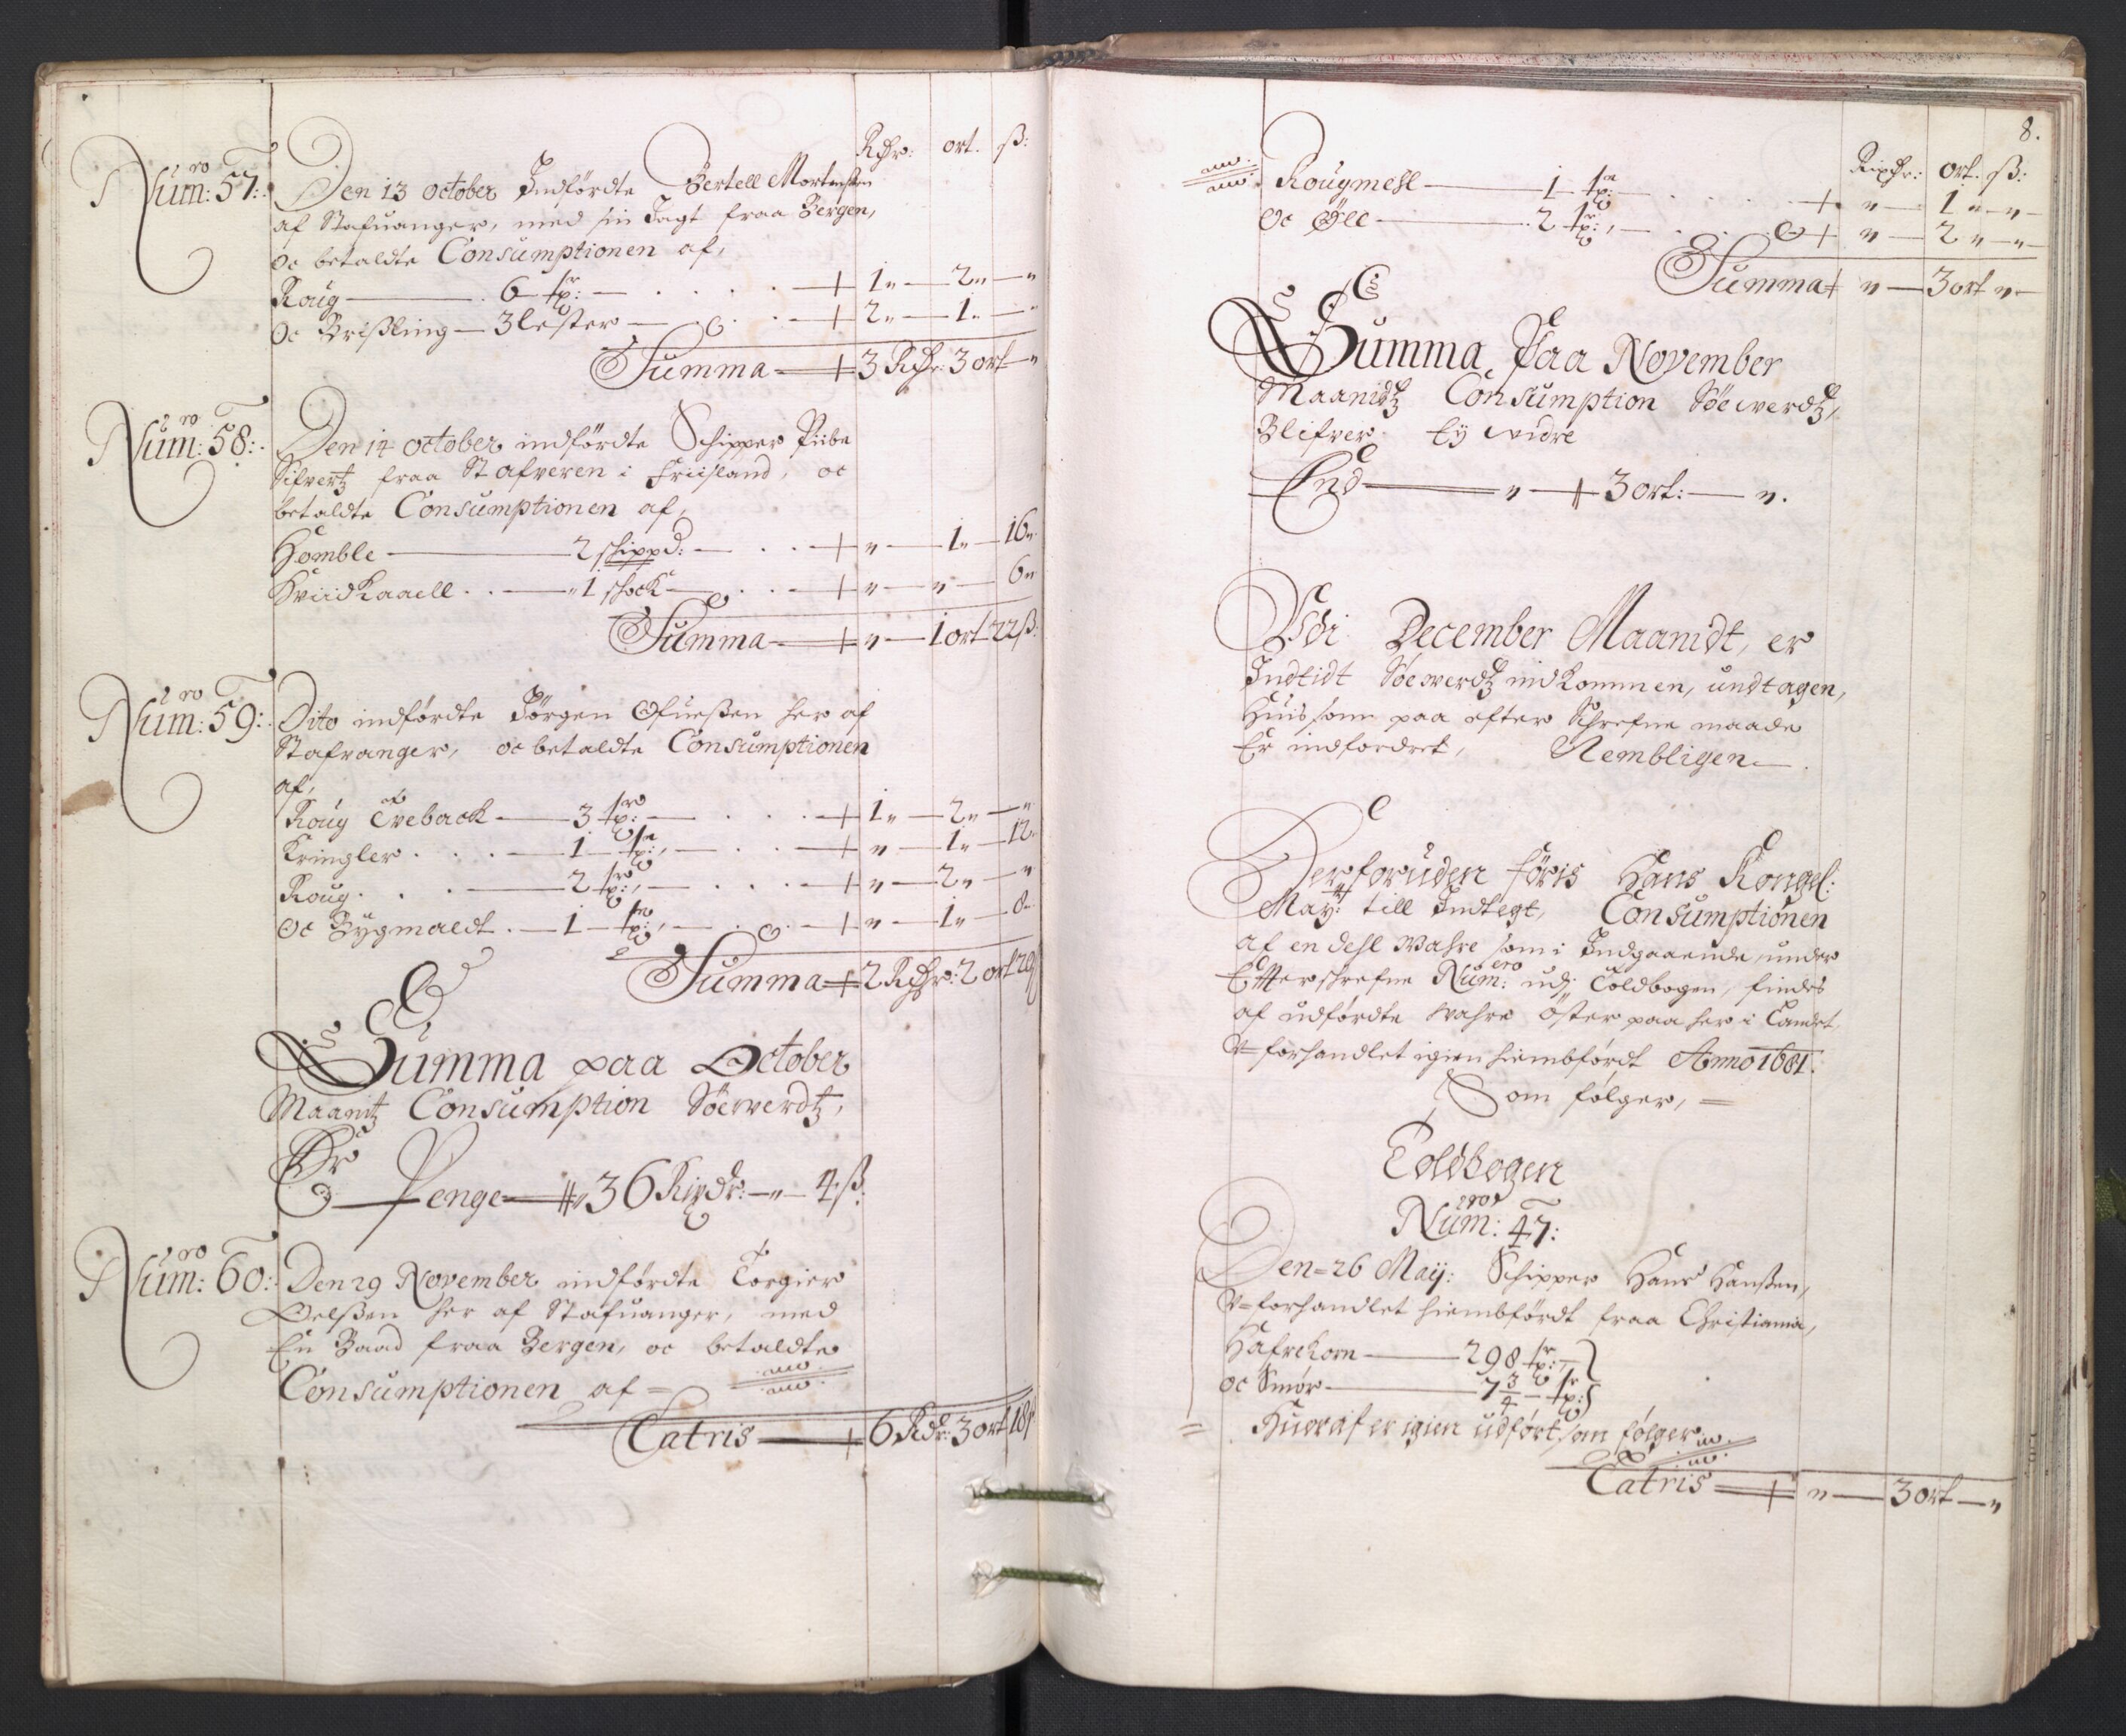 Rdr: ort. ß:
Num:ro 57: Den 13 October Indførdte Bertell Mortenßen
af Stafuanger, med sin Jagt fraa Bergen,
oc betaldte Consumptionen af,
Roug — 6 tr: — + 1 „ — 2 „ — „
Oc Brißling — 3 lester — + 2 „ — 1 „ — „
Summa + 3 Rdr: 3 ort „
Num:ro 58: Den 14 October indførdte Schipper Piibe
Sifvertz fraa Stafveren i Friisland, oc
betaldte Consumptionen af,
Homble — 2 schippd: — + „ — 1 „ — 16 „
Hviidkaaell — „ 1 schock — + „ — „ — 6 „
Summa + „ — 1 ort 22 ß:
Num:ro 59: Dito indførdte Jörgen Ofueßen her af
Stafvanger, oc betaldte Consumptionen
af,
Roug Tveback — 3 tr: — + 1 „ — 2 „ — „
Kringler — 1 tr: — + „ — 1 „ — 12 „
Roug — 2 tr: — + „ — 2 „ — „
Oc Bygmaldt — 1 tr: — + „ — 1 „ — 8 „
Summa + 2 Rdr: 2 ort 20 ß
Summa paa October
Maanitz Consumption Söewerdtz,
Er
Penge — „ 36 Rixdr: — „ — 4 ß:
Num:ro 60: Den 29 November indførdte Torgier
Oelßen her af Stafuanger, med
En Baad fraa Bergen, oc betaldte
Consumptionen af
Latris + 6 Rdr: 3 ort 18 ß
8.
Rixdr: ort. ß:
Rougmehl — 1 tr: — + „ — 1 „ — „
Oc Öll — 2 tr: — + „ — 2 „ — „
Summa + „ — 3 ort „
Summa Paa November
Maanidtz Consumption Söewerdtz,
Blifver Ey vidre
End — „ — + 3 ort: — „.
Udi December Maanidt, er
Indtidt Söewerdtz indkommen, undtagen,
Huis som paa efter Schrefne maade
Er indfordret, Nembligen
Derforuden föris Hans Kongel:
May:tt till Indtegt, Consumptionen
af en dehl Wahre som i Indgaaende, under
Efterschrefne Num:ero udj Toldbogen, findes
af udførdte Wahre öster paa her i Landet,
U=forhandlet igien hiembførdt Anno 1681.
Som følger,
Toldbogen
Num:ero 47:
Den 26 Maij: Schipper Hans Hanßen,
U=forhandlet hiembførdt fraa Christiania,
Hafrekorn — 298 tr:
oc Smør — 7 3/4 tr:
Hueraf er igien udført, som følger
Latris + „ — 3 ort — „